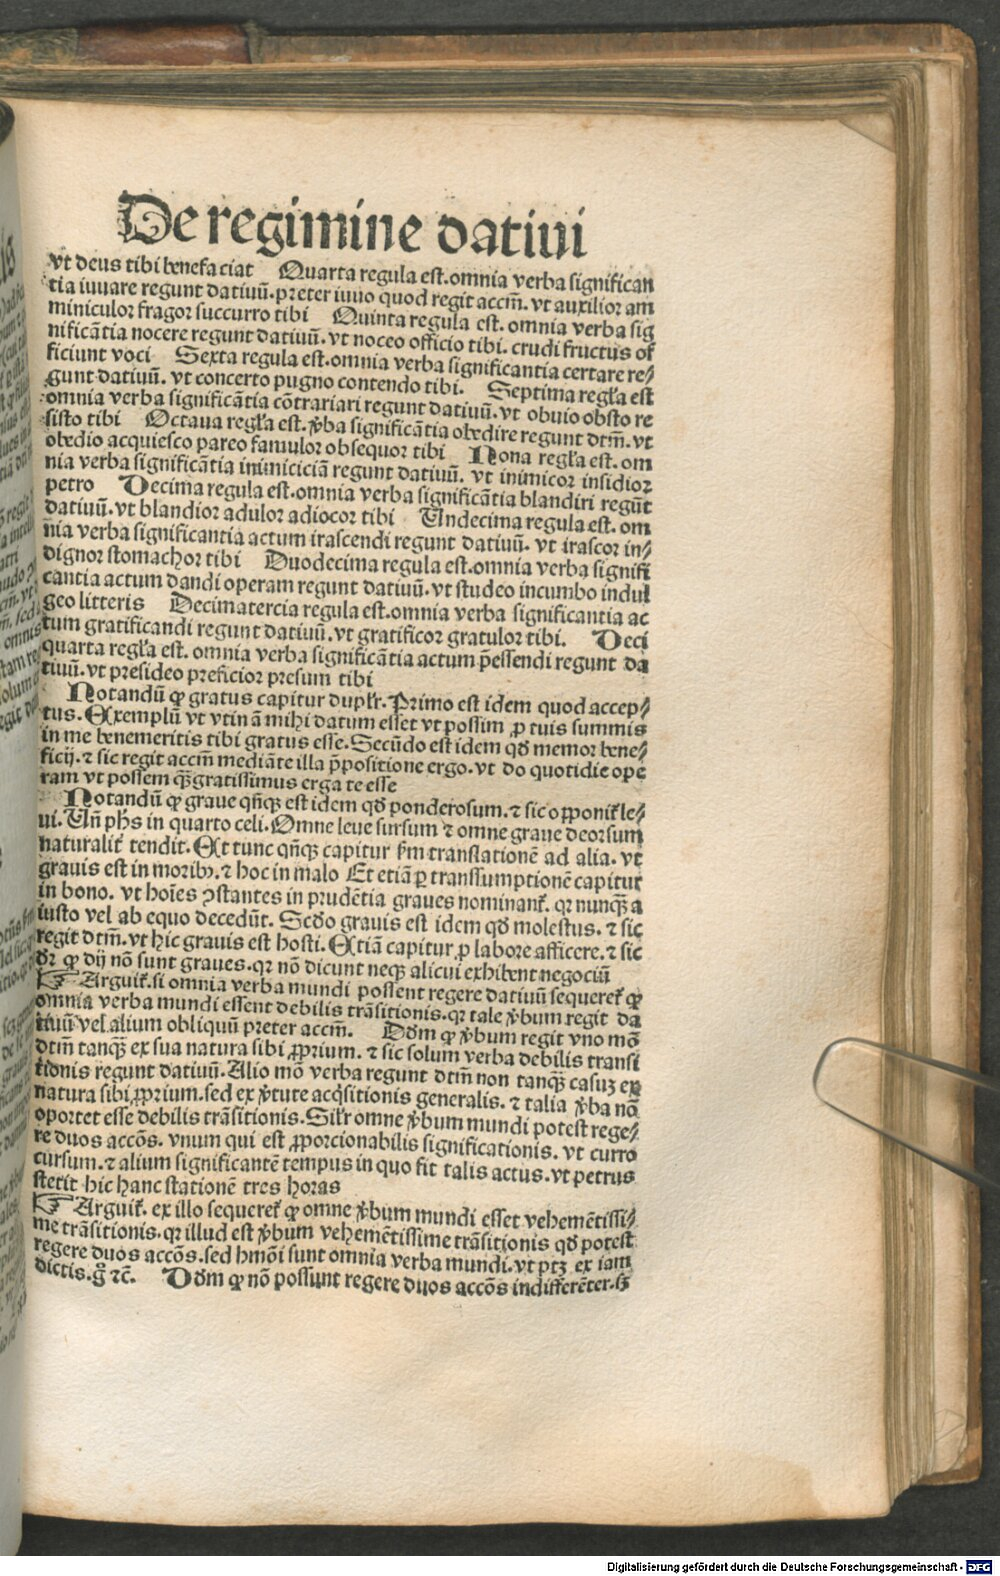 De regimine datiui
vt deus tibi benefaciat Quarta regula est. omnia verba significan
tia iuuare regunt datiuū. preter iuuo quod regit accm̄. vt auxilior am
miniculor fragor succurro tibi Quinta regula est. omnia verba sig
nificātia nocere regunt datiuū. vt noceo officio tibi. crudi fructus of
ficiunt voci Sexta regula est. omnia verba significantia certare re⸗
gunt datiuū. vt concerto pugno contendo tibi. Septima regĺa est
omnia verba significātia cōtrariari regunt datiuū. vt obuio obsto re
sisto tibi Octaua regĺa est. v̓ba significātia obedire regunt dtm̄. vt
obedio acquiesco pareo famulor obsequor tibi Nona regĺa est. om
nia verba significātia inimiciciā regunt datiuū. vt inimicor insidior
petro Decima regula est. omnia verba significātia blandiri regūt
datiuū. vt blandior adulor adiocor tibi Undecima regula est. om
nia verba significantia actum irascendi regunt datiuū. vt irascor in⸗
dignor stomachor tibi Duodecima regula est. omnia verba signifi
cantia actum dandi operam regunt datiuū. vt studeo incumbo indul
geo litteris Decimatercia regula est. omnia verba significantia ac
tum gratificandi regunt datiuū. vt gratificor gratulor tibi. Deci
quarta regĺa est. omnia verba significātia actum p̄essendi regunt da
tiuū. vt presideo preficior presum tibi
Notandū ꝙ gratus capitur duplr̓. Primo est idem quod accep⸗
tus. Exemplū vt vtinā mihi datum esset vt possim ꝓ tuis summis
in me benemeritis tibi gratus esse. Secūdo est idem qd̓ memor bene⸗
ficij. ⁊ sic regit accm̄ mediāte illa p̄positione ergo. vt do quotidie ope
ram vt possem qꝫ̄gratissimus erga te esse
Notandū ꝙ graue qn̄qꝫ est idem qd̓ ponderosum. ⁊ sic opponit̓ le⸗
ui. Un̄ ph̓s in quarto celi. Omne leue sursum ⁊ omne graue deorsum
naturalit̓ tendit. Et tunc qn̄qꝫ capitur s̓m translationē ad alia. vt
grauis est in moribꝫ. ⁊ hoc in malo Et etiā ꝑ transsumptionē capitur
in bono. vt hoīes ꝯstantes in prudētia graues nominant̓. qꝛ nunqꝫ̄ a
iusto vel ab equo decedūt. Scd̓o grauis est idem qd̓ molestus. ⁊ sic
regit dtm̄. vt hic grauis est hosti. Etiā capitur ꝓ labore afficere. ⁊ sic
dr̓ ꝙ dij nō sunt graues. qꝛ nō dicunt neqꝫ alicui exhibent negociū
☞ Arguit̓. si omnia verba mundi possent regere datiuū sequeret̓ ꝙ
omnia verba mundi essent debilis trāsitionis. qꝛ tale v̓bum regit da
tiuū vel alium obliquū preter accm̄. Dd̓m ꝙ v̓bum regit vno mō
dtm̄ tanqꝫ̄ ex sua natura sibi ꝓprium. ⁊ sic solum verba debilis transi
tionis regunt datiuū. Alio mō verba regunt dtm̄ non tanqꝫ̄ casuꝫ ex
natura sibi ꝓprium. sed ex v̓tute acq̓sitionis generalis. ⁊ talia v̓ba nō
oportet esse debilis trāsitionis. Silr̓ omne v̓bum mundi potest rege⸗
re duos accōs. vnum qui est ꝓporcionabilis significationis. vt curro
cursum. ⁊ alium significantē tempus in quo fit talis actus. vt petrus
stetit hic hanc stationē tres horas
☞ Arguit̓. ex illo sequeret̓ ꝙ omne v̓bum mundi esset vehemētissi⸗
me trāsitionis. qꝛ illud est v̓bum vehemētissime trāsitionis qd̓ potest
regere duos accōs. sed hmōi sunt omnia verba mundi. vt ptꝫ ex iam
dictis. g̊ ⁊c̄. Dd̓m ꝙ nō possunt regere duos accōs indifferēter. sꝫ
Digitalisierung gefördert durch die Deutsche Forschungsgemeinschaft - DFG